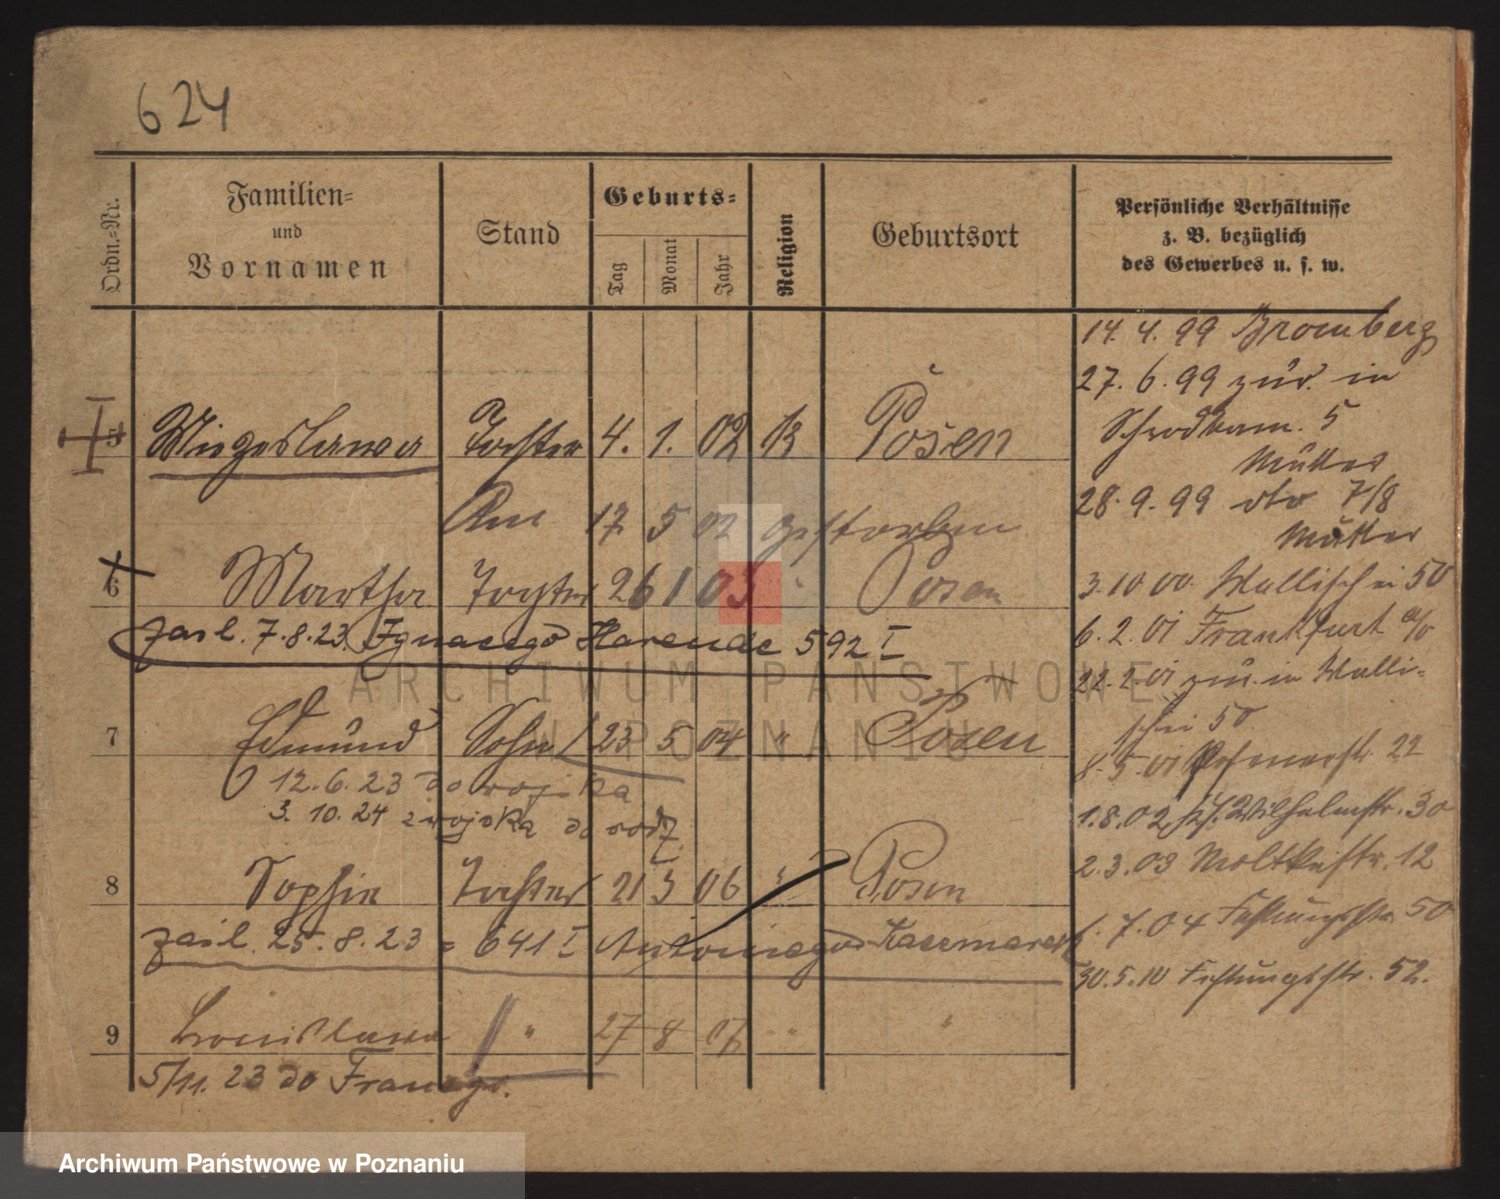 624
Ordn.-Nr.
Familien-
und
Vornamen
Stand
Geburts-
Tag
Monat
Jahr
Religion
Geburtsort
Persönliche Verhältnisse
z. B. bezüglich
des Gewerbes u. s. w.
5 Miezeslawa Tochter 4. 1. 02 K Posen
Am 17 5 02 gestorben
6 Martha Tochter 26 1 03 " Posen
zaśl. 7.8.23. Ignacego Harende 592 I
7 Edmund Sohn 23 5 04 " Posen
12.6.23 do wojska
3. 10. 24 z wojska do rodz
8 Sophie Tochter 21 5 06 " Posen
zaśl. 25.8.23 = 641 I Antoniego Kaczmarek
9 Bronislawa " 27 8 07 " "
5/11. 23 do Francji.
14. 4. 99 Bromberg
27. 6. 99 zur. in
Schrodkam. 5
Mutter
28. 9. 99 dto 7/8
Mutter
3. 10 00. Wallischei 50
6. 2. 01 Frankfurt a/o
22. 2. 01 zur. in Walli-
schei 50
8. 5. 01 22
1. 8. 02 Wilhelmstr. 30
2. 3. 03 Moltkestr. 12
1. 7. 04 Festungsstr. 50
30. 5. 10 Festungsstr. 52.
ARCHIWUM PAŃSTWOWE
W POZNANIU
Archiwum Państwowe w Poznaniu